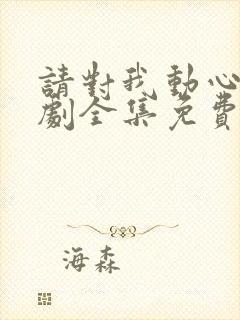 請對我動心
劇全集免費
海森